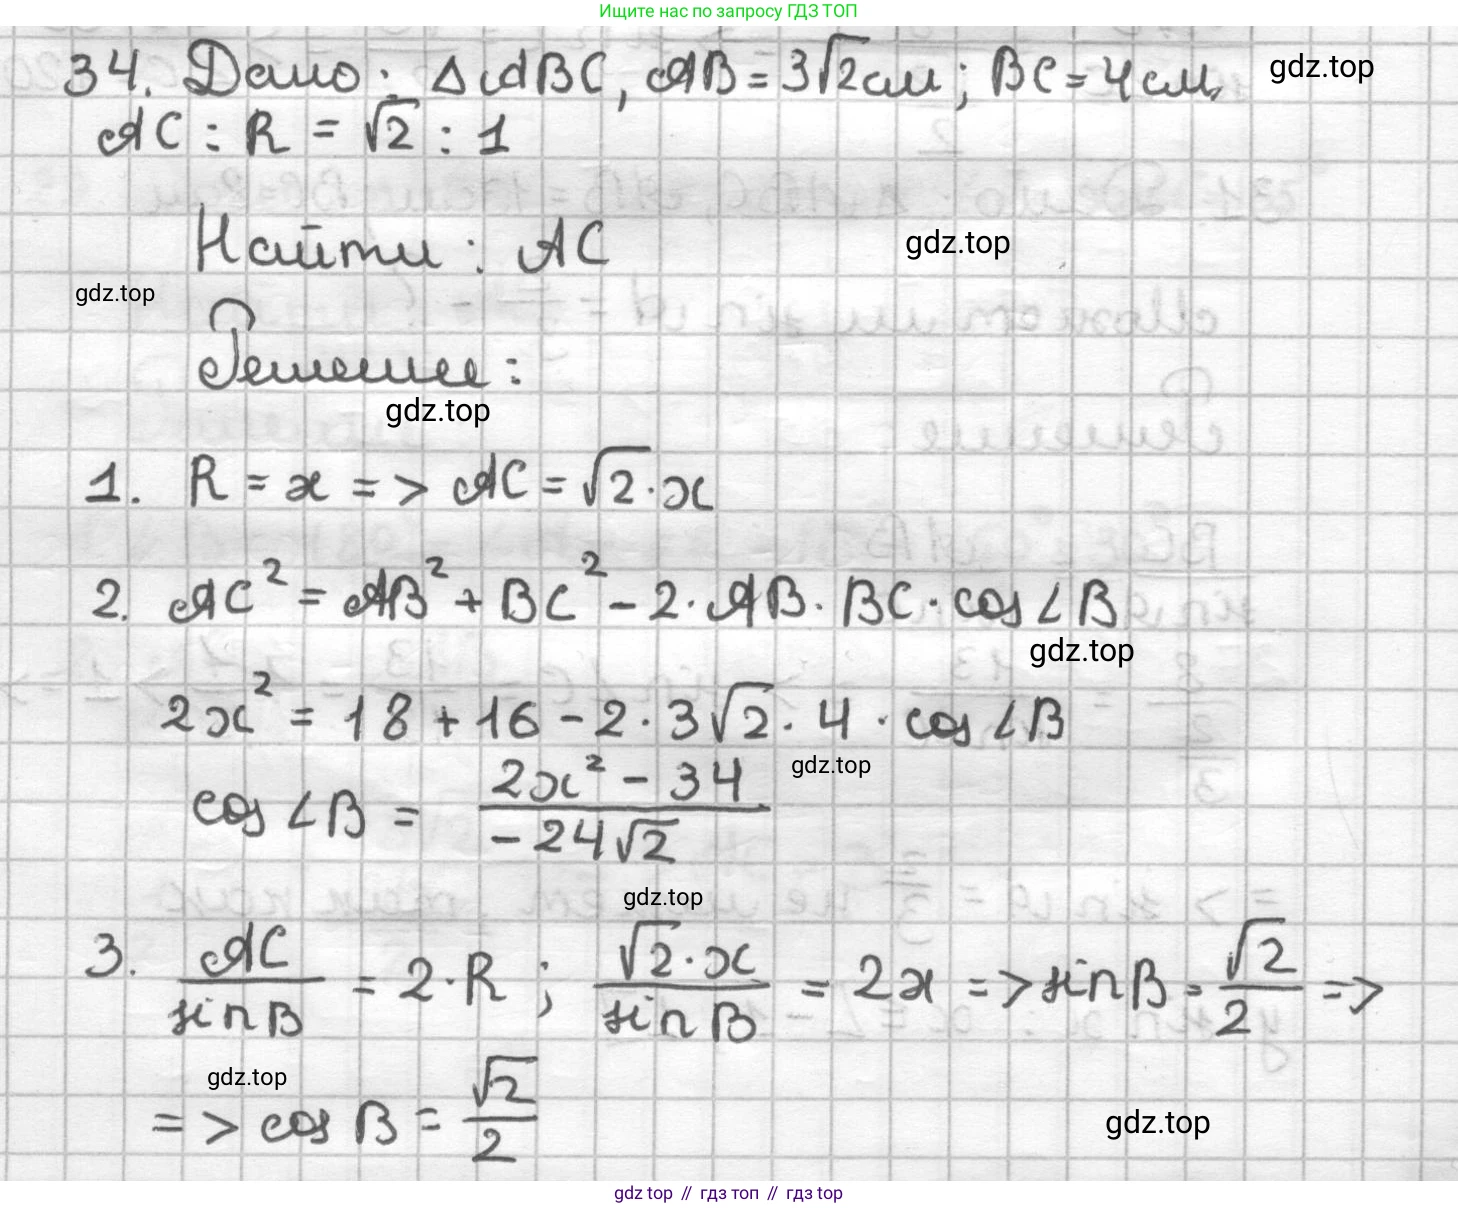 Ищите нас по запросу ГДЗ ТОП
34. Дано: ΔABC, AB = 3√2 см; BC = 4 см, gdz.top
AC : R = √2 : 1
Найти: AC gdz.top
gdz.top
Решение:
gdz.top
1. R = x => AC = √2 · x
2. AC² = AB² + BC² - 2 · AB · BC · cos∠B
gdz.top
2x² = 18 + 16 - 2 · 3√2 · 4 · cos∠B
gdz.top
cos∠B = (2x² - 34)/(-24√2)
gdz.top
3. AC/sin B = 2 · R ; (√2 · x)/sin B = 2x => sin B = √2/2 =>
gdz.top
=> cos B = √2/2 gdz.top
gdz top // гдз топ // гдз top